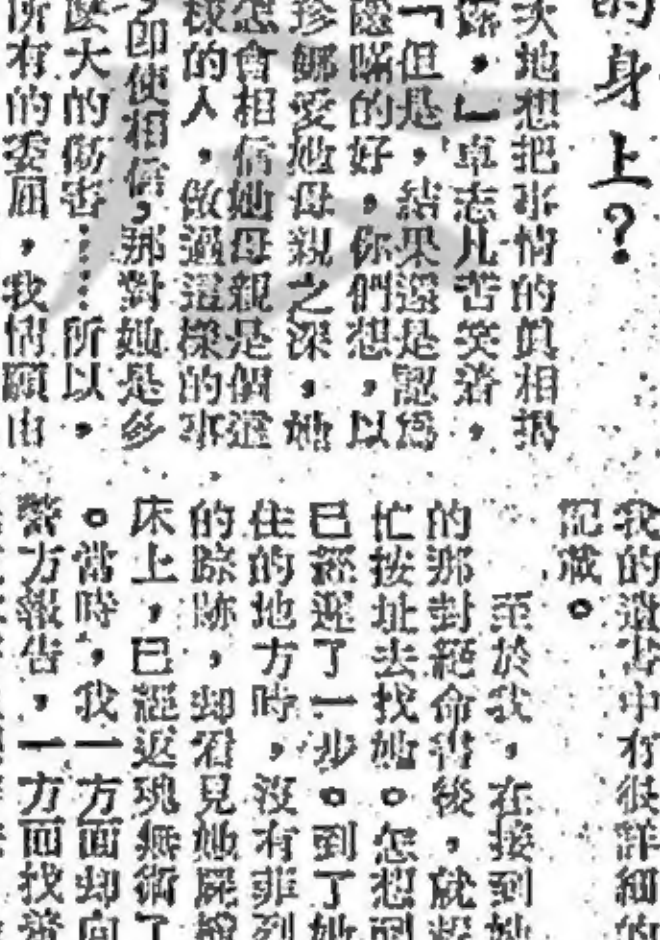 的身上？
次地想把事情的眞相揭
露，」卓志凡苦笑着，
「但是，結果還是認爲
隱瞞的好，你們想，以
珍娜愛她母親之深，她
怎會相信她母親是個這
樣的人，做過這樣的事
，即使相信，那對她是多
麼大的傷害……所以，
所有的委屈，我情願由
我的遺書中有很詳細的
記載。
至於我，在接到她
的那封絕命書後，就趕
忙按址去找她。怎想到
已經遲了一步。到了她
住的地方時，沒有菲列
的踪跡，却看見她屍
床上，已經返魂無術了
。當時，我一方面却向
警方報告，一方面找